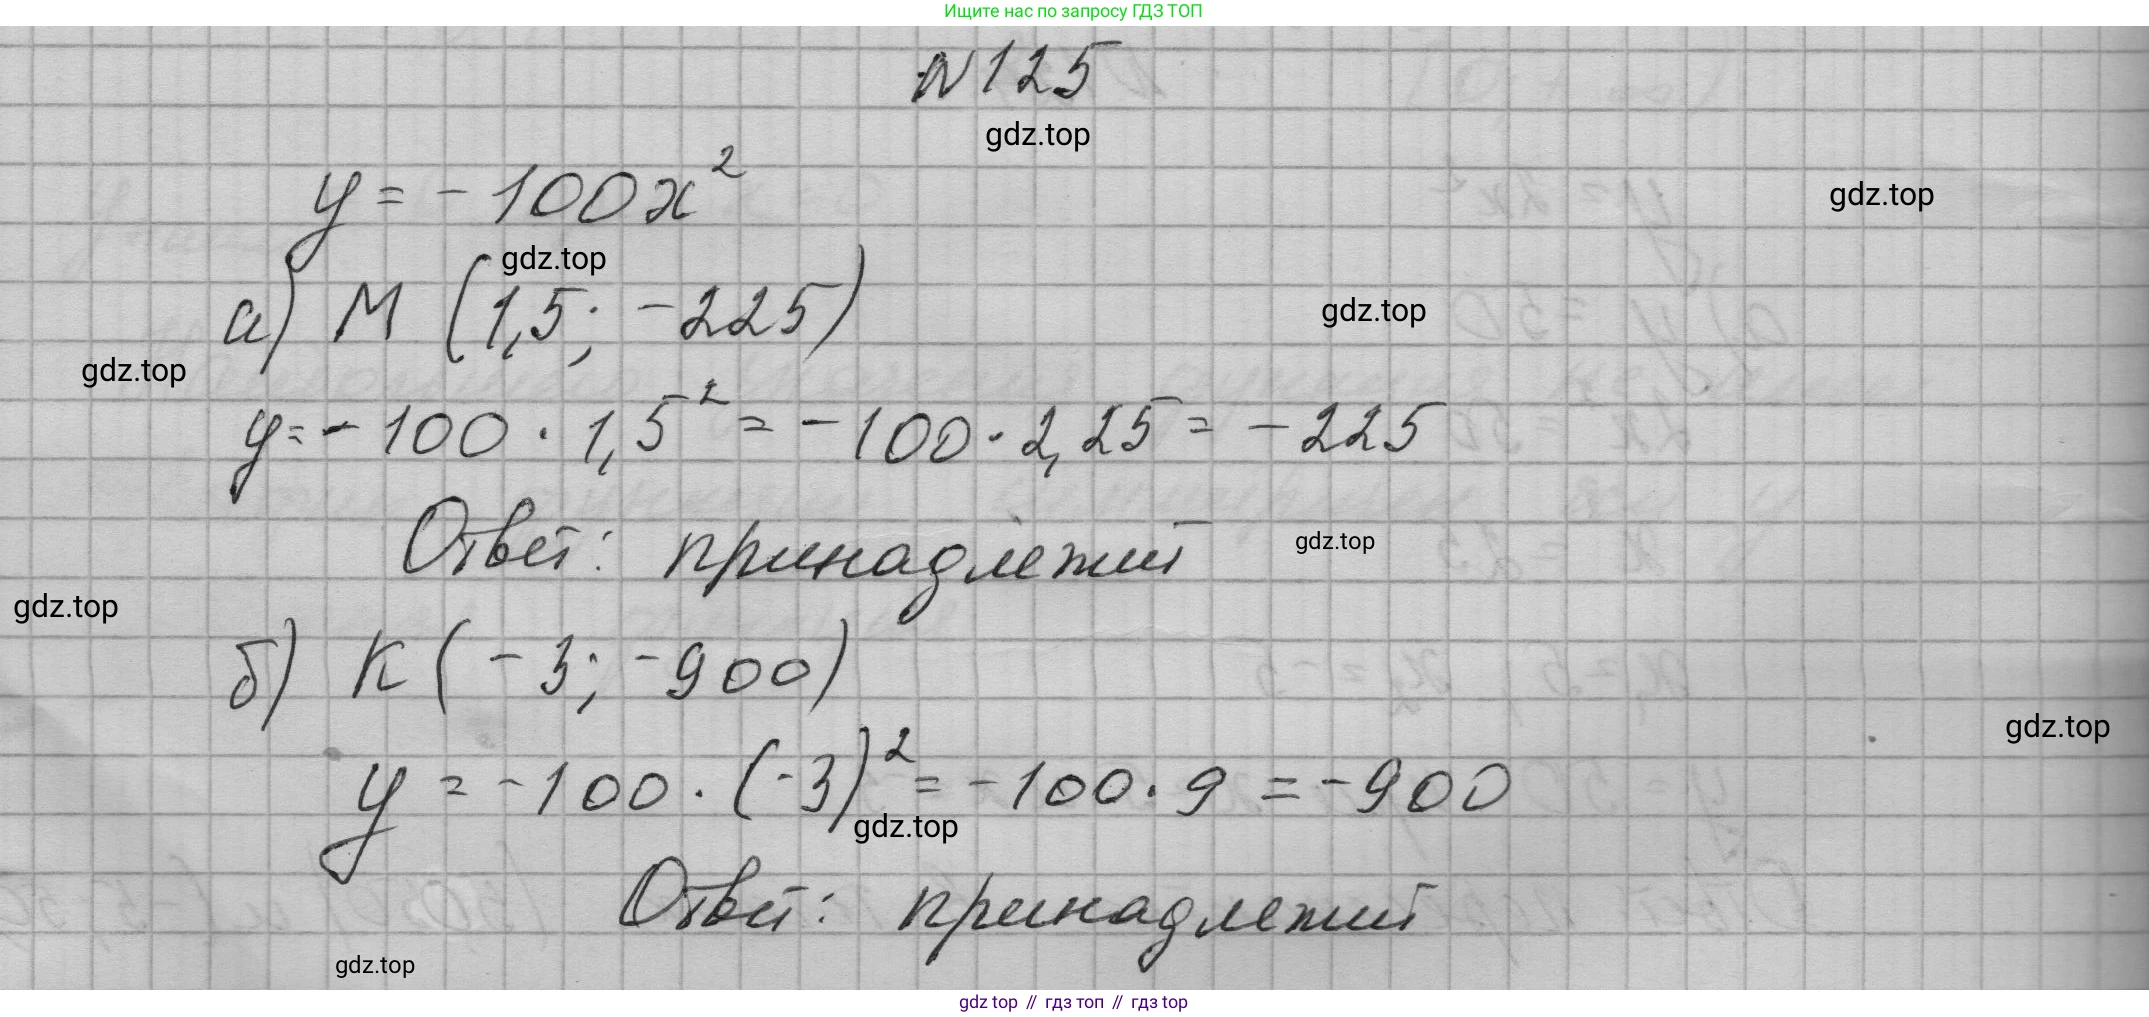 Ищите нас по запросу ГДЗ ТОП
№125
gdz.top
y = -100x²
gdz.top
gdz.top
а) M (1,5; -225)
gdz.top
gdz.top
y = -100 · 1,5² = -100 · 2,25 = -225
Ответ: принадлежит
gdz.top
gdz.top
б) K (-3; -900)
gdz.top
y = -100 · (-3)² = -100 · 9 = -900
gdz.top
Ответ: принадлежит
gdz.top
gdz top // гдз топ // гдз top